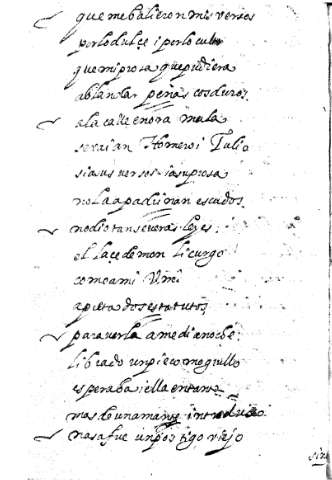 que me balieron mis versos
por lo dulçe i por lo culto
que mi prosa que pudiera
ablandar peñas cos duros
a la calle en ora mala
se rian Homero i Tulio
si a us versos i a su prosa
no la apadrinan escudos
no dio tan severas leyes
el laçedemon licurgo
como a mi
apretados estatutos
para verla a media noche
librado un pie como grullo
esperaba i ella en tanto
mas de una mano introduxo
nasa fue un postigo viejo